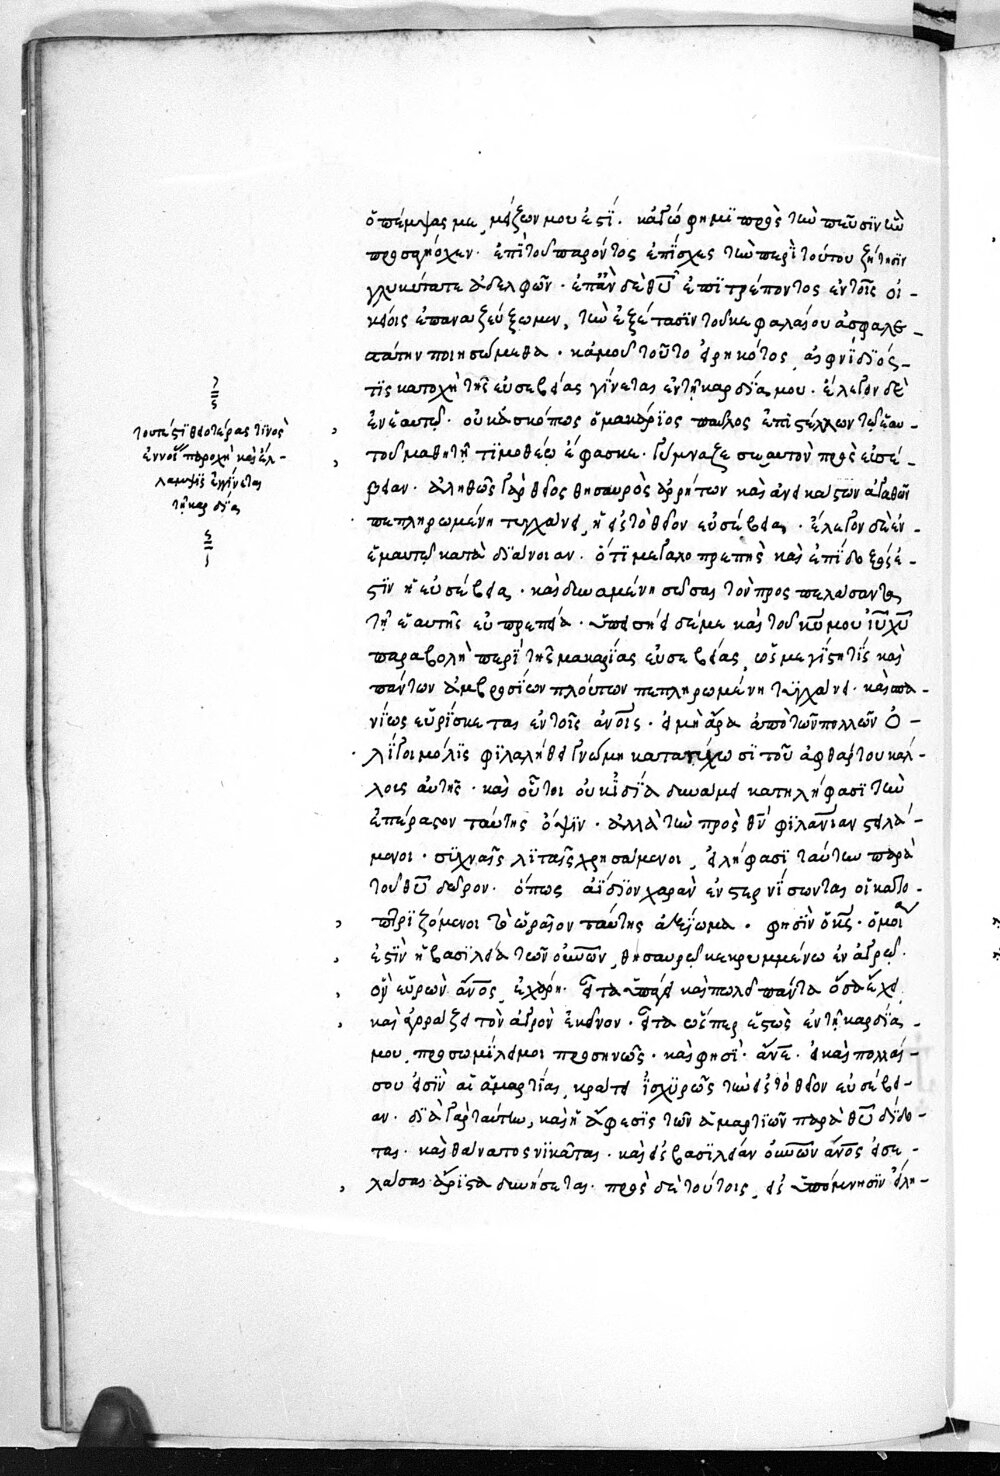 ὁ πέμψας με, μείζων μου ἐστί. κἀγώ φημι πρὸς τὼ πεῦσιν τὼ
προσαγηόχει. ἐπὶ τοῦ παρόντος ἐπίσχες τὼ περὶ τούτου ζήτησιν
γλυκύτατε ἀδελφῶν. ἐπὰν δὲ θῦ ἐπιτρέποντος ἐν τοῖς οἰ-
κείοις ἐπαναζεύξωμεν, τὼ ἐξέτασιν τοῦ κεφαλαίου ἀσφαλε-
στάτην ποιησώμεθα. κἀμοῦ τοῦτο εἰρηκότος, αἰφνίδιός
τις κατοχὴ τῆς εὐσεβείας γίνεται ἐν τῇ καρδίᾳ μου. ἔλεγον δὲ
ἐν ἑαυτῷ. οὐκ ἀσκόπως ὁ μακάριος παῦλος ἐπιστέλλων τῷ ἑαυ-
τοῦ μαθητῇ τιμοθέῳ ἔφασκε. γύμναζε σεαυτὸν πρὸς εὐσέ-
βειαν. ἀληθῶς γὰρ θεῖος θησαυρὸς ἀρρήτων καὶ ἀνεικάστων ἀγαθῶν
πεπληρωμένη τυγχάνει, ἡ εἰς τὸ θεῖον εὐσέβεια. ἔλεγον δὲ ἐν
ἐμαυτῷ κατὰ διάνοιαν. ὅτι μεγαλοπρεπὴς καὶ ἐπίδοξός ἐ-
στιν ἡ εὐσέβεια. καὶ δυναμένη σῶσαι τὸν προσπελάσαντα
τῇ ἑαυτῆς εὐπρεπείᾳ. ὑπεισήει δέ με καὶ τοῦ κυ μου ιυ χυ
παραβολὴ περὶ τῆς μακαρίας εὐσεβείας, ὡς μεγίστη τίς καὶ
πάντων ἀμβροσίων πλούτων πεπληρωμένη τυγχάνει. καὶ σπα-
νίως εὑρίσκεται ἐν τοῖς ἀνοις. εἰ μὴ ἄρα ἀπὸ τῶν πολλῶν ὀ-
λίγοι μόλις φιλαλήθει γνώμῃ κατατύχωσι τοῦ ἀφθάρτου κάλ-
λους αὐτῆς. καὶ οὗτοι οὐκ ἰδίᾳ δυνάμει κατηλήφασι τὼ
ἐπέραστον ταύτης ὄψιν. ἀλλὰ τὼ πρὸς θν φιλανίαν στειλά-
μενοι. συχναῖς λιταῖς χρησάμενοι, εἰλήφασι ταύτω παρὰ
τοῦ θυ δῶρον. ὅπως ἀΐδιον χαρὰν ἐνστερνίσωνται οἱ κατο-
πτριζόμενοι τὸ ὡραῖον ταύτης ἀξίωμα. φησὶν ὁ κς. ὁμοία
ἐστὶν ἡ βασιλεία τῶν οὐνων, θησαυρῷ κεκρυμμένω ἐν ἀγρῷ.
ὃν εὑρὼν ἄνος, ἐχάρη. εἶτα ὑπάγει καὶ πωλεῖ πάντα ὅσα ἔχει,
καὶ ἀγοράζει τὸν ἀγρὸν ἐκεῖνον. εἶτα ὥσπερ ἑστὼς ἐν τῇ καρδίᾳ
μου, προσωμίλει μοι προσηνῶς. καὶ φησί. ἄνε. εἰ καὶ πολλαί
σου εἰσὶν αἱ ἁμαρτίαι, κράτει ἰσχυρῶς τὼ εἰς τὸ θεῖον εὐσέβει-
αν. διὰ γὰρ ταύτω, καὶ ἡ ἄφεσις τῶν ἁμαρτιῶν παρὰ θυ δίδο-
ται. καὶ θάνατος νικᾶται. καὶ εἰς βασιλείαν οὐνων ἄνος εἰσε-
λάσαι ἄριστα δυνήσεται. πρὸς δὲ τούτοις, εἰς ὑπόμνησιν ἐλη-
τουτέστι θειοτέρας τινὸς
ἐννοίας παροχὴ καὶ ἔλ-
λαμψις ἐγγίνεται
τῇ καρδίᾳ